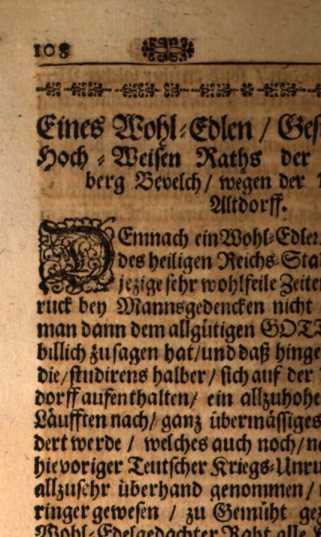 108
Eines Wohl-Edlen / Ges
Hoch-Weisen Raths der
berg Bevelch / wegen der
Altdorff.
DEmnach ein Wohl-Edler
des heiligen Reichs-Sta
jezige sehr wohlfeile Zeiten
ruck bey Mannsgedencken nicht
man dann dem allgütigen GOTT
billich zu sagen hat / und daß hinge
die / studirens halber / sich auf der
dorff aufenthalten / ein allzuhohe
Läufften nach / ganz übermässiges
dert werde / welches auch noch / n
hievoriger Teutscher Kriegs-Unru
allzusehr überhand genommen /
ringer gewesen / zu Gemüht gez
Wohl-Edelgedachter Raht alle